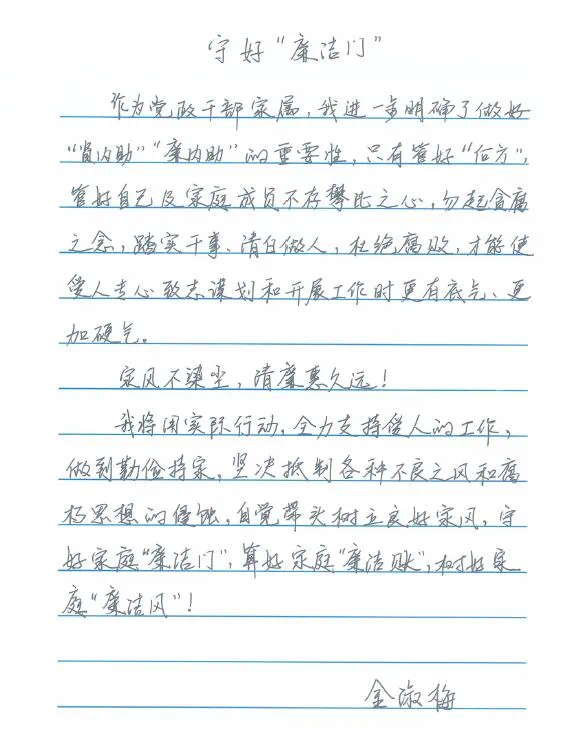 守好“廉洁门”
作为党政干部家属，我进一步明确了做好
“贤内助”“廉内助”的重要性，只有管好“后方”，
管好自己及家庭成员不存攀比之心，勿起贪腐
之念，踏实干事、清白做人，杜绝腐败，才能使
爱人专心致志谋划和开展工作时更有底气、更
加硬气。
家风不染尘，清廉惠久远！
我将用实际行动，全力支持爱人的工作，
做到勤俭持家，坚决抵制各种不良之风和腐
朽思想的侵蚀，自觉带头树立良好家风，守
好家庭“廉洁门”，算好家庭“廉洁账”，树好家
庭“廉洁风”！
金淑梅